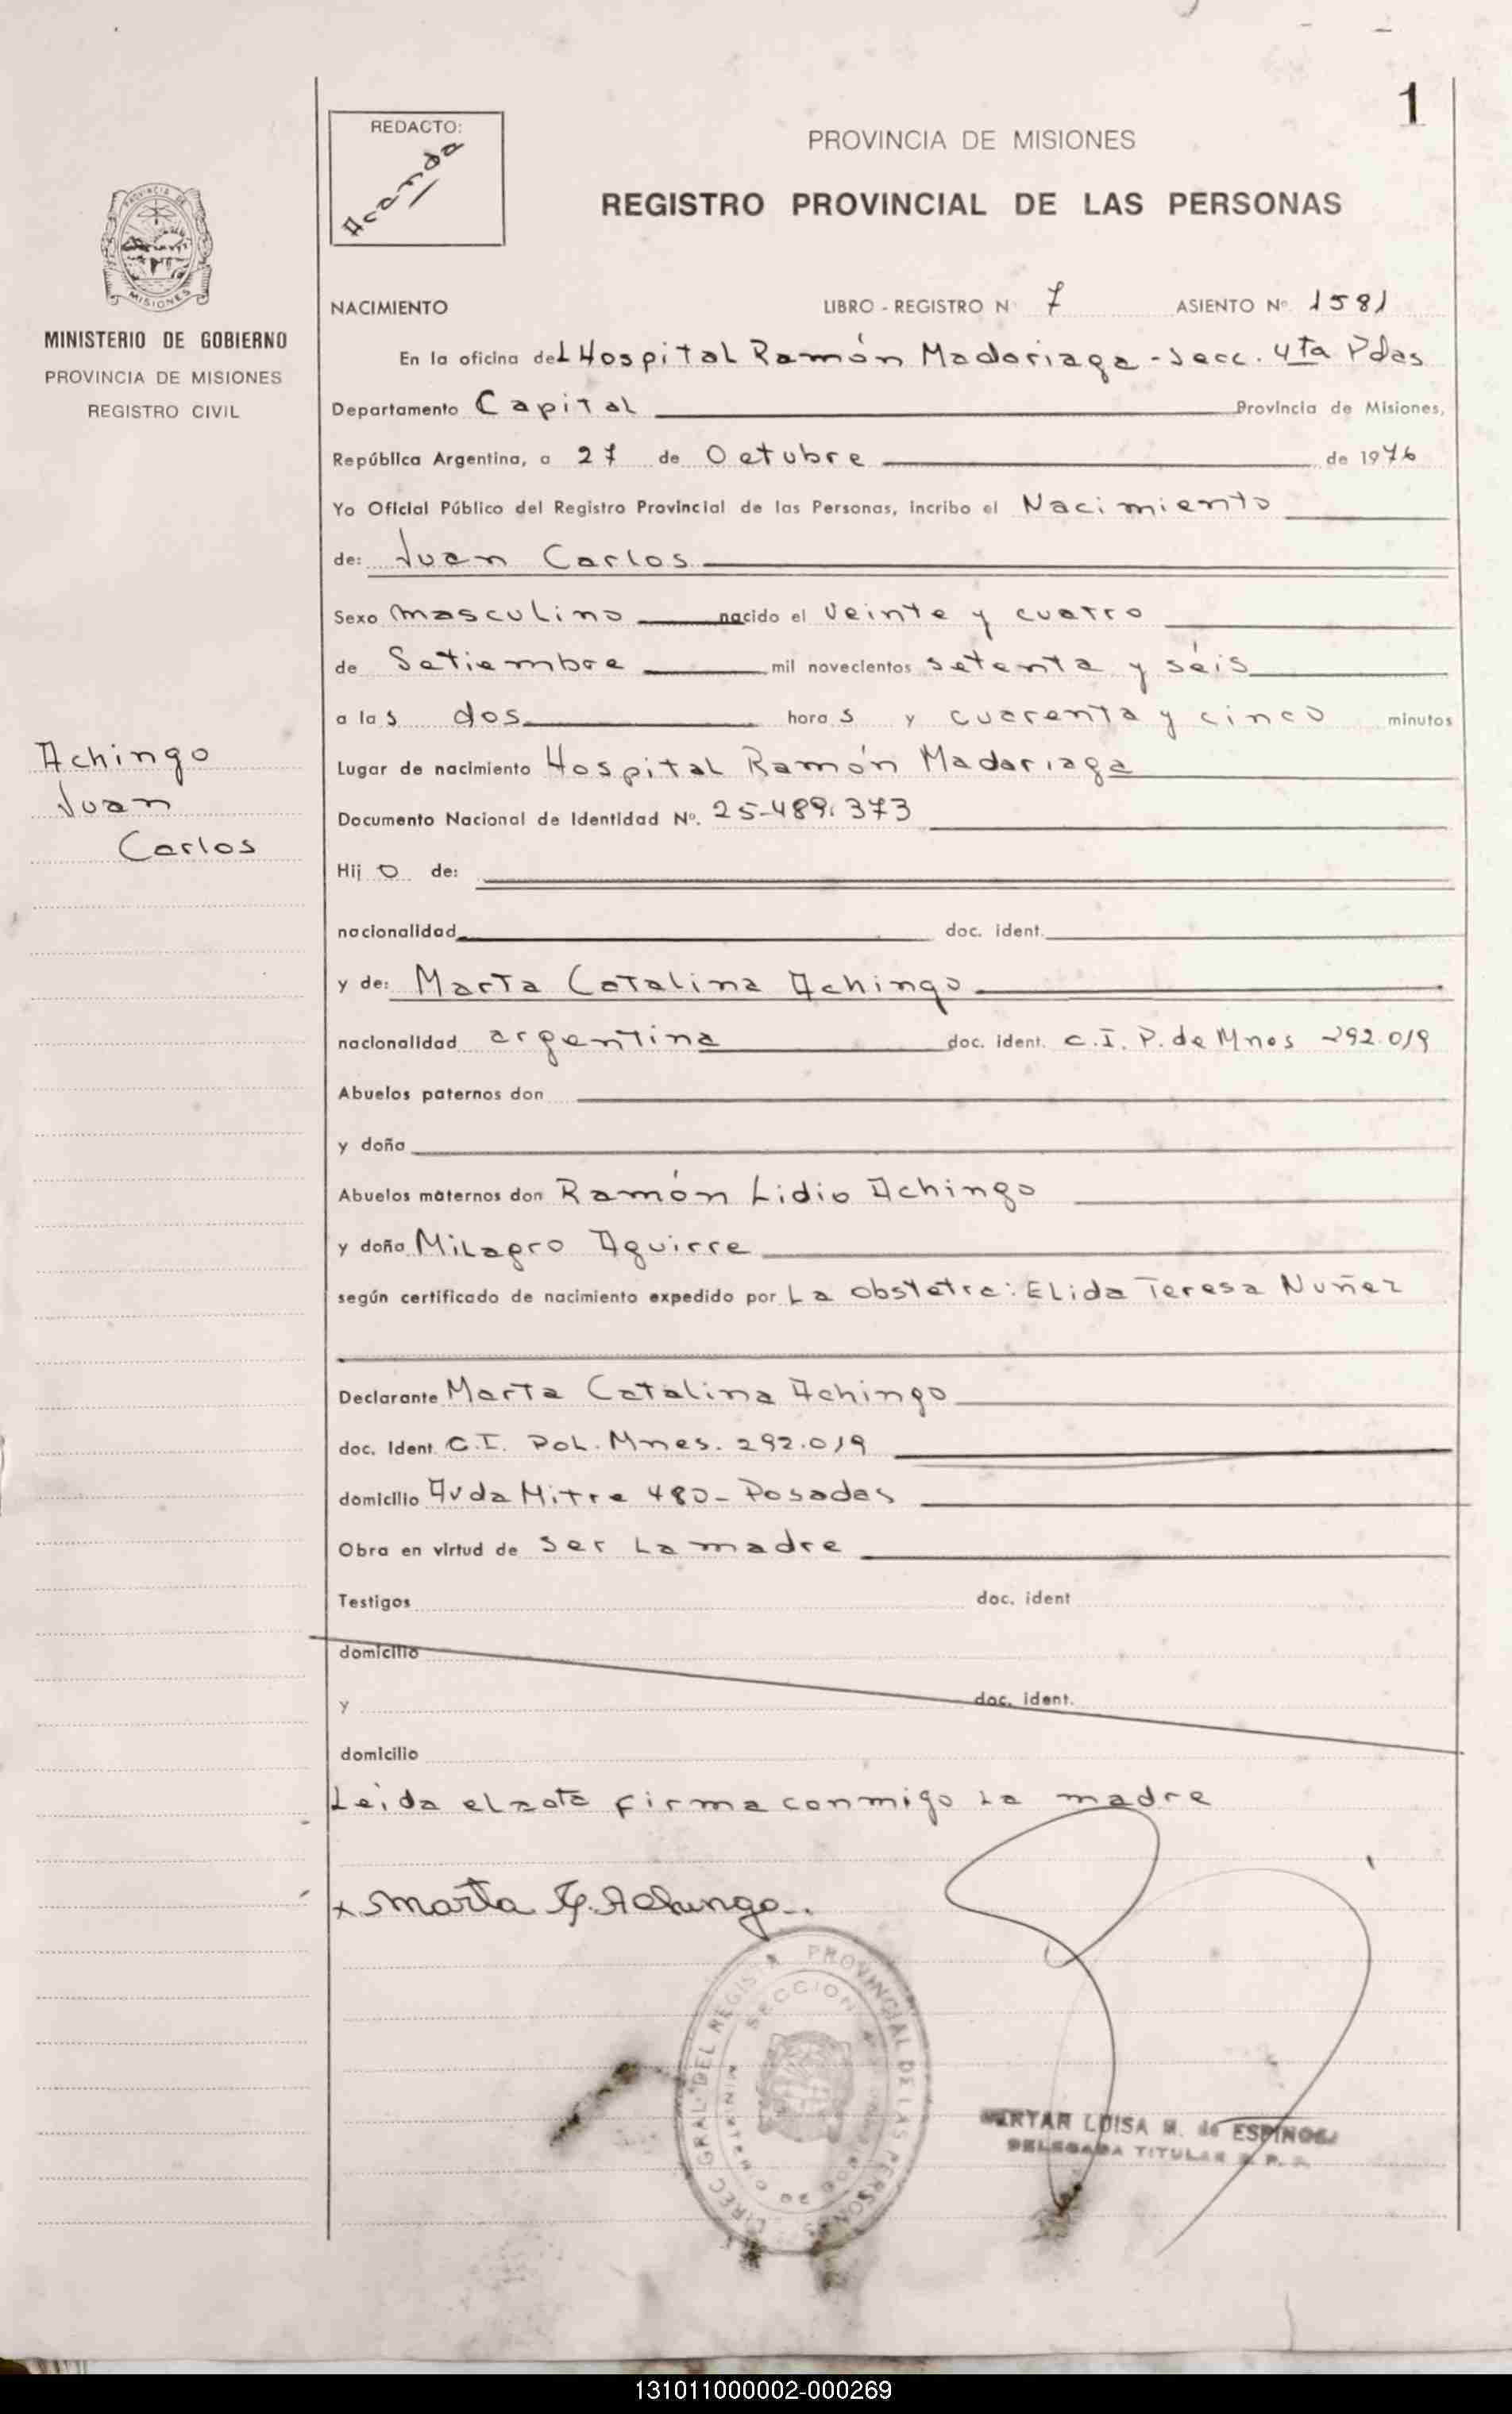 1
REDACTO:
Acanda
PROVINCIA DE MISIONES
REGISTRO PROVINCIAL DE LAS PERSONAS
MINISTERIO DE GOBIERNO
PROVINCIA DE MISIONES
REGISTRO CIVIL
NACIMIENTO LIBRO - REGISTRO N° 7 ASIENTO Nº 1581
En la oficina del Hospital Ramón Madariaga - Secc. 4ta Pdas
Departamento Capital Provincia de Misiones,
República Argentina, a 27 de Octubre de 1976
Yo Oficial Público del Registro Provincial de las Personas, incribo el Nacimiento
de: Juan Carlos
Sexo masculino nacido el veinte y cuatro
de Setiembre mil novecientos setenta y séis
a las dos horas y cuarenta y cinco minutos
Achingo
Juan
Carlos
Lugar de nacimiento Hospital Ramón Madariaga
Documento Nacional de Identidad Nº. 25-489.373
Hijo de:
nacionalidad doc. ident.
y de: Marta Catalina Achingo
nacionalidad argentina doc. ident. C.I. P. de Mnes 292.019
Abuelos paternos don
y doña
Abuelos maternos don Ramón Lidio Achingo
y doña Milagro Aguirre
según certificado de nacimiento expedido por La obstetra: Elida Teresa Nuñez
Declarante Marta Catalina Achingo
doc. Ident. C.I. Pol. Mnes. 292.019
domicilio Avda Mitre 480- Posadas
Obra en virtud de ser La madre
Testigos doc. ident
domicilio
y doc. ident.
domicilio
Leída el acta firma conmigo La madre
x Marta Achingo.
DIREC. GRAL. DEL REGIST. PROVINCIAL DE LAS PERSONAS
SECCION
LUISA M. de ESPINOSA
DELEGADA TITULAR R. P.
131011000002-000269